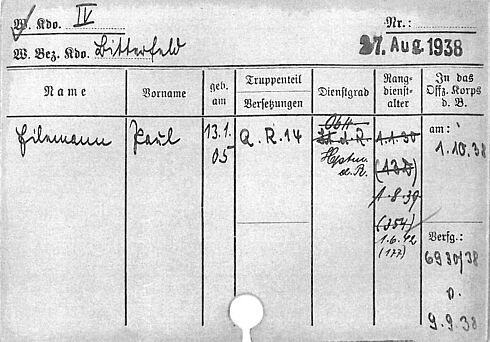 W. Kdo. IV Nr.:
W. Bez. Kdo. Bitterfeld 27. Aug. 1938
Name Vorname geb. am Truppenteil Versetzungen Dienstgrad Rang- dienst- alter In das Offz. Korps d. B.
Eilemann Paul 13.1. 05 A.R.14 Lt. d. R. am: 1.10.38
Hptm. d. R.
1.8.39
(354)
1.6.42
(177)
Verfg.:
6930/38
v.
9.9.38